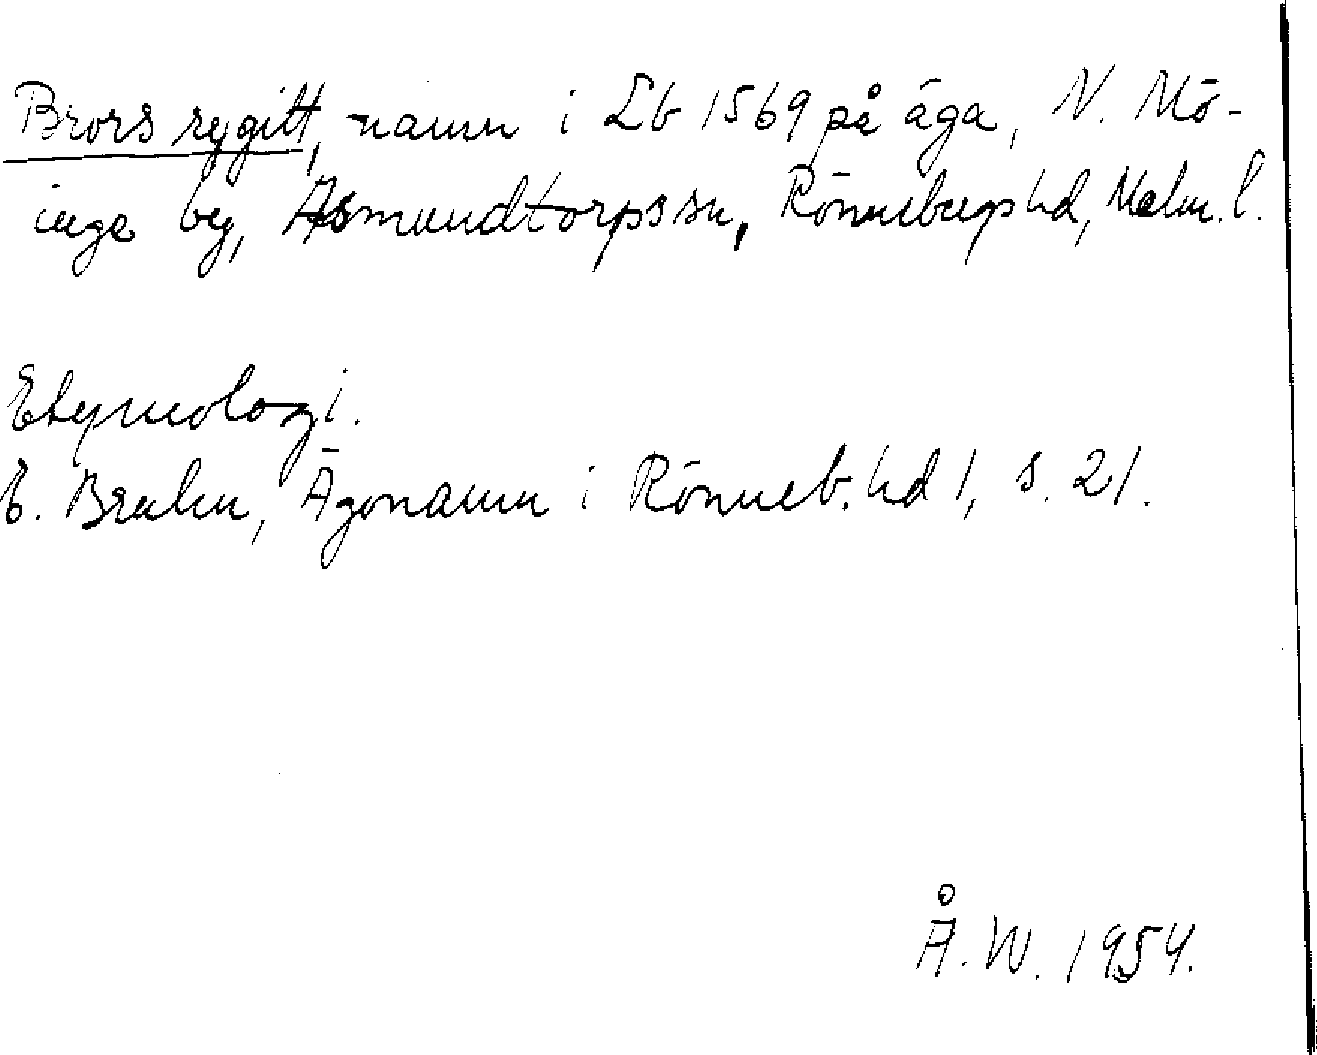 Brors rygitt, namn i Lb 1569 på äga, N. Mö-
inge by, Asmundtorps sn, Rönnebergs hd, Malm. l.
Etymologi.
E. Bruhn, Ägonamn i Rönneb. hd 1, s. 21.
Å. W. 1954.